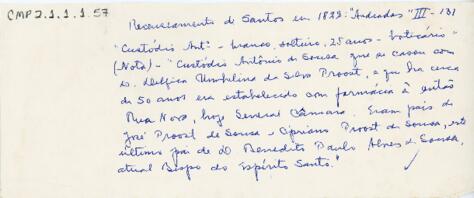 CMP 2.1.1.1.57
Recenseamento de Santos em 1822: "Andradas" III - 131
"Custódio Antº - branco, solteiro, 25 anos - boticário"
(Nota) - "Custódio Antônio de Sousa que se casou com
D. Delfica Umbelina da Silva Proost, e que há cerca
de 50 anos era estabelecido com farmácia à então
Rua Nova, hoje General Câmara. Eram pais de
José Proost de Sousa e Cipriano Proost de Sousa, este
último pai de D. Benedito Paulo Alves de Sousa,
atual Bispo do Espírito Santo."